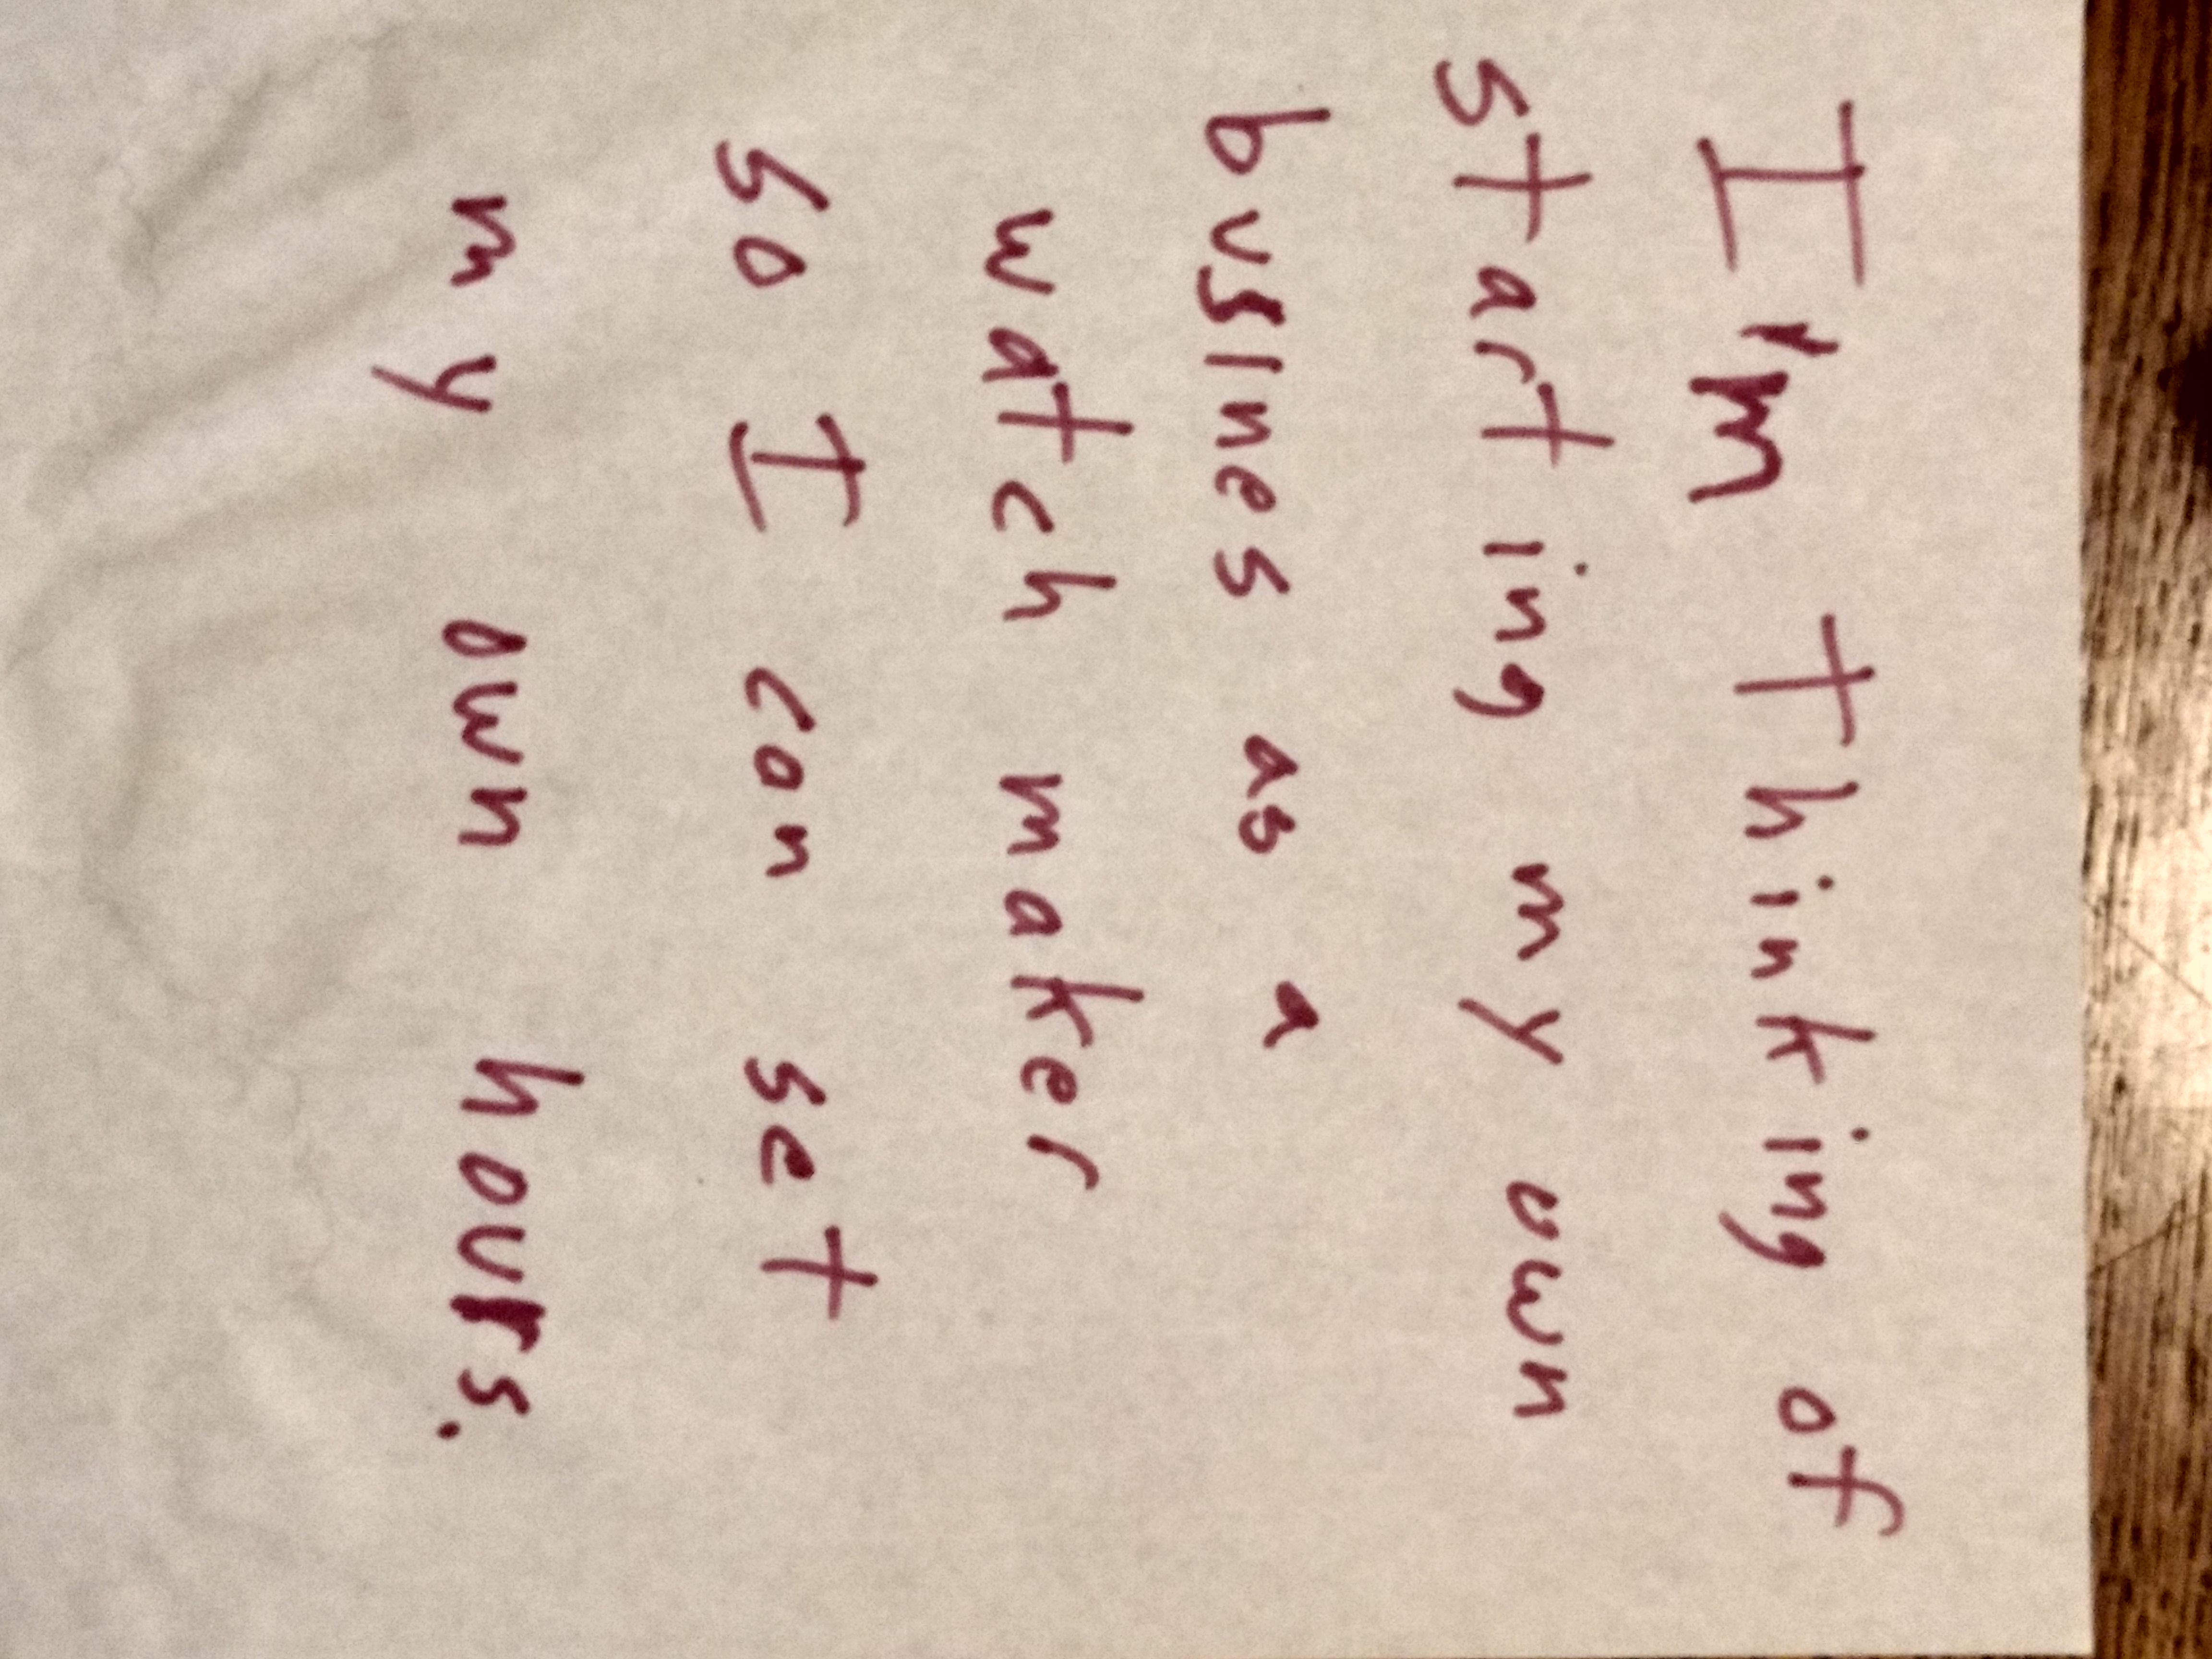 I'm thinking of
starting my own
busines as a
watch maker
so I can set
my own hours.